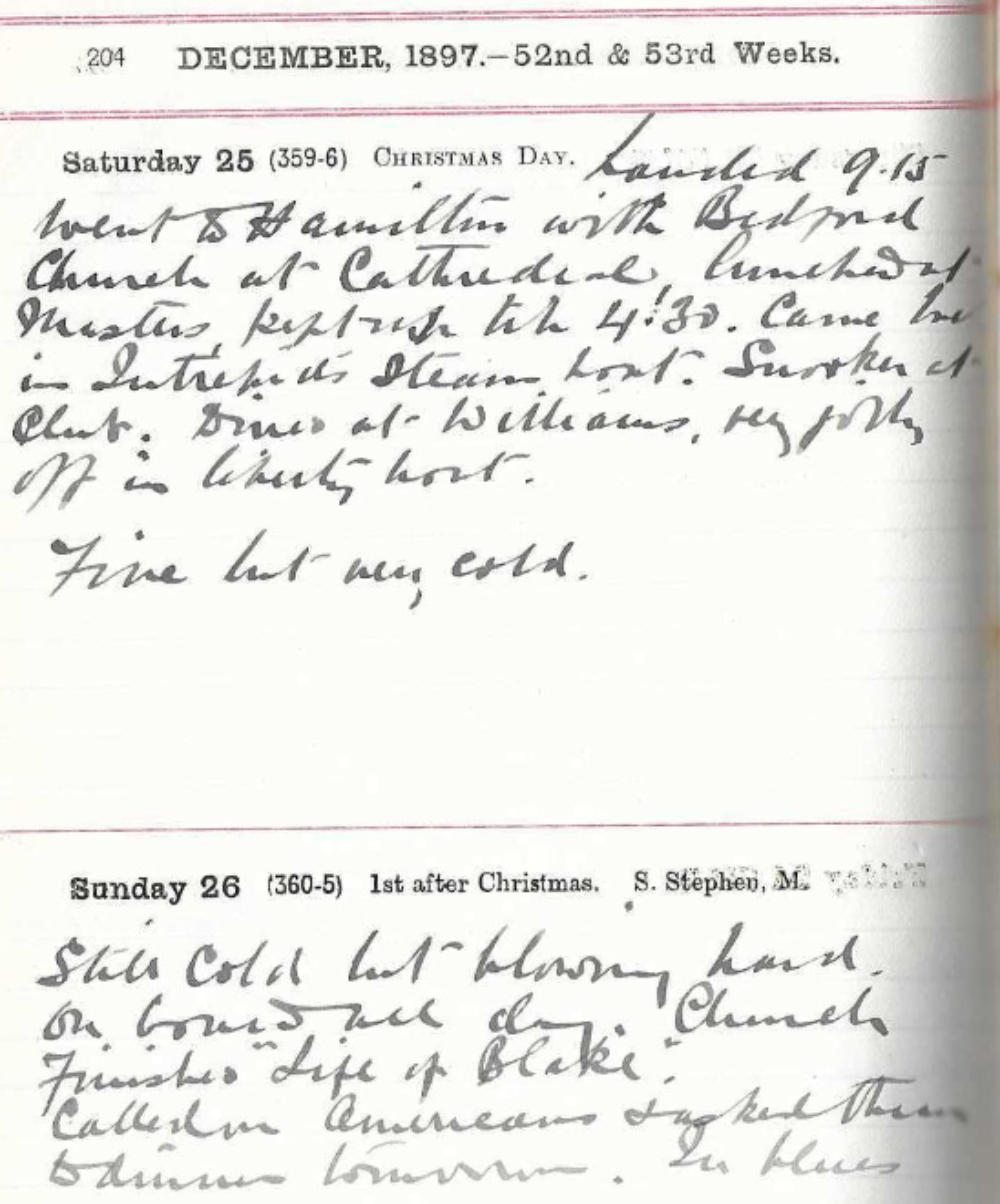 204 DECEMBER, 1897.—52nd & 53rd Weeks.
Saturday 25 (359-6) CHRISTMAS DAY. Landed 9.15
Went to Hamilton with Bedford
Church at Cathedral, lunched at
Masters, kept up till 4.30. Came
in Intrepid's Steam boat. Snooker at
Club. Dined at Williams, very jolly
off in liberty boat.
Fine but very cold.
Sunday 26 (360-5) 1st after Christmas. S. Stephen, M.
Still Cold but blowing hard.
On board all day. Church
Finished "Life of Blake".
Called on Americans & asked them
to dinner tomorrow. In blues